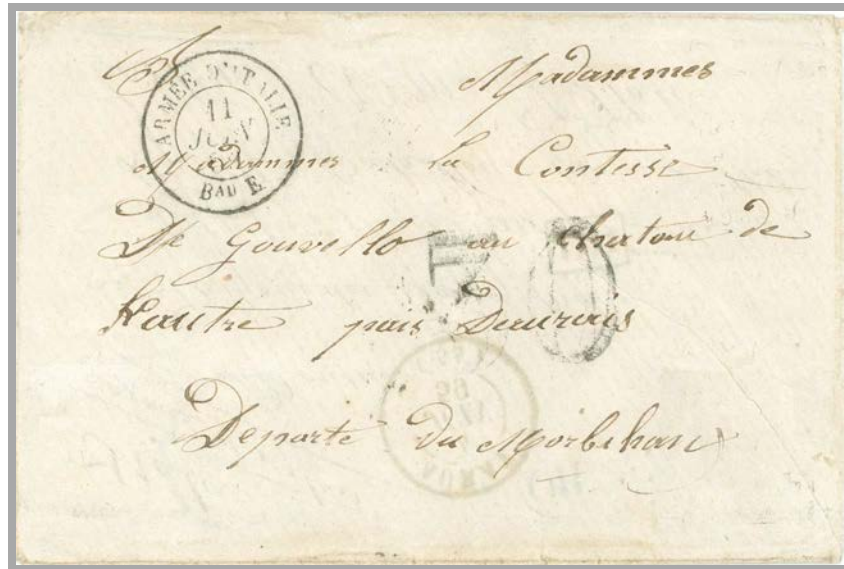 ARMÉE D'ITALIE
11
JUIN
BAU E
A Madammes
Madammes la Contesse
De Gouvello au chatau de
Kautre pais Deauvais
Departé du Morbihan